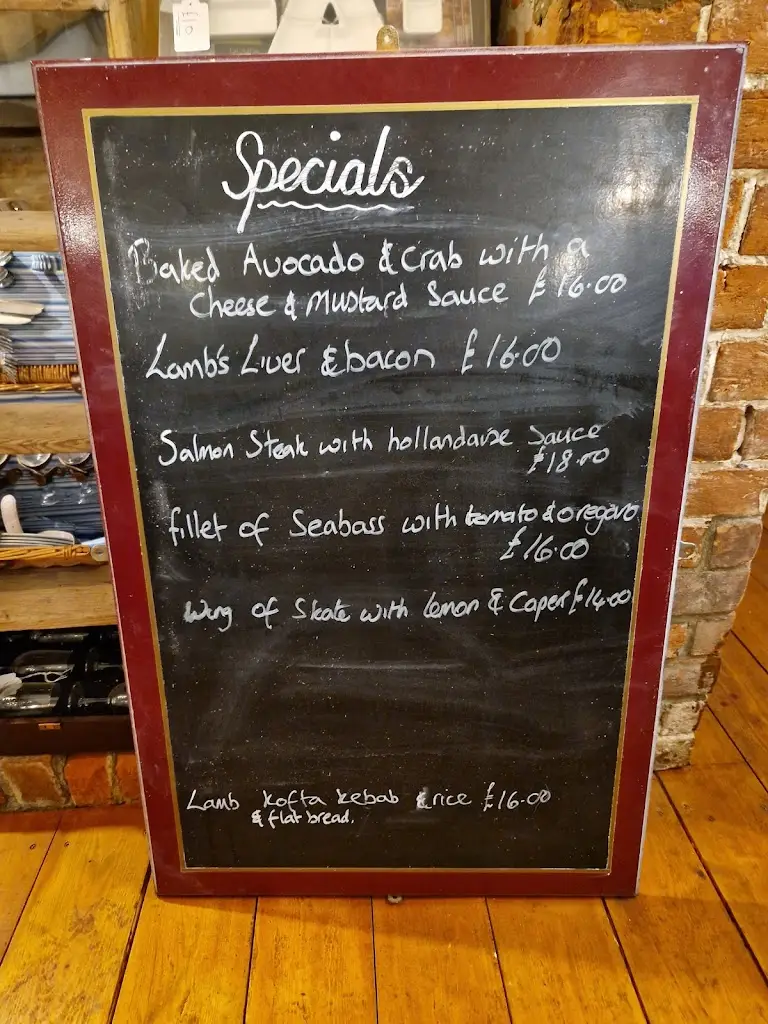 £10
Specials
Baked Avocado & Crab with a
Cheese & Mustard Sauce £16.00
Lamb's Liver & bacon £16.00
Salmon Steak with hollandaise Sauce
£18.00
fillet of Seabass with tomato & oregano
£16.00
Wing of Skate with lemon & Caper £14.00
Lamb kofta kebab & rice £16.00
& flat bread.